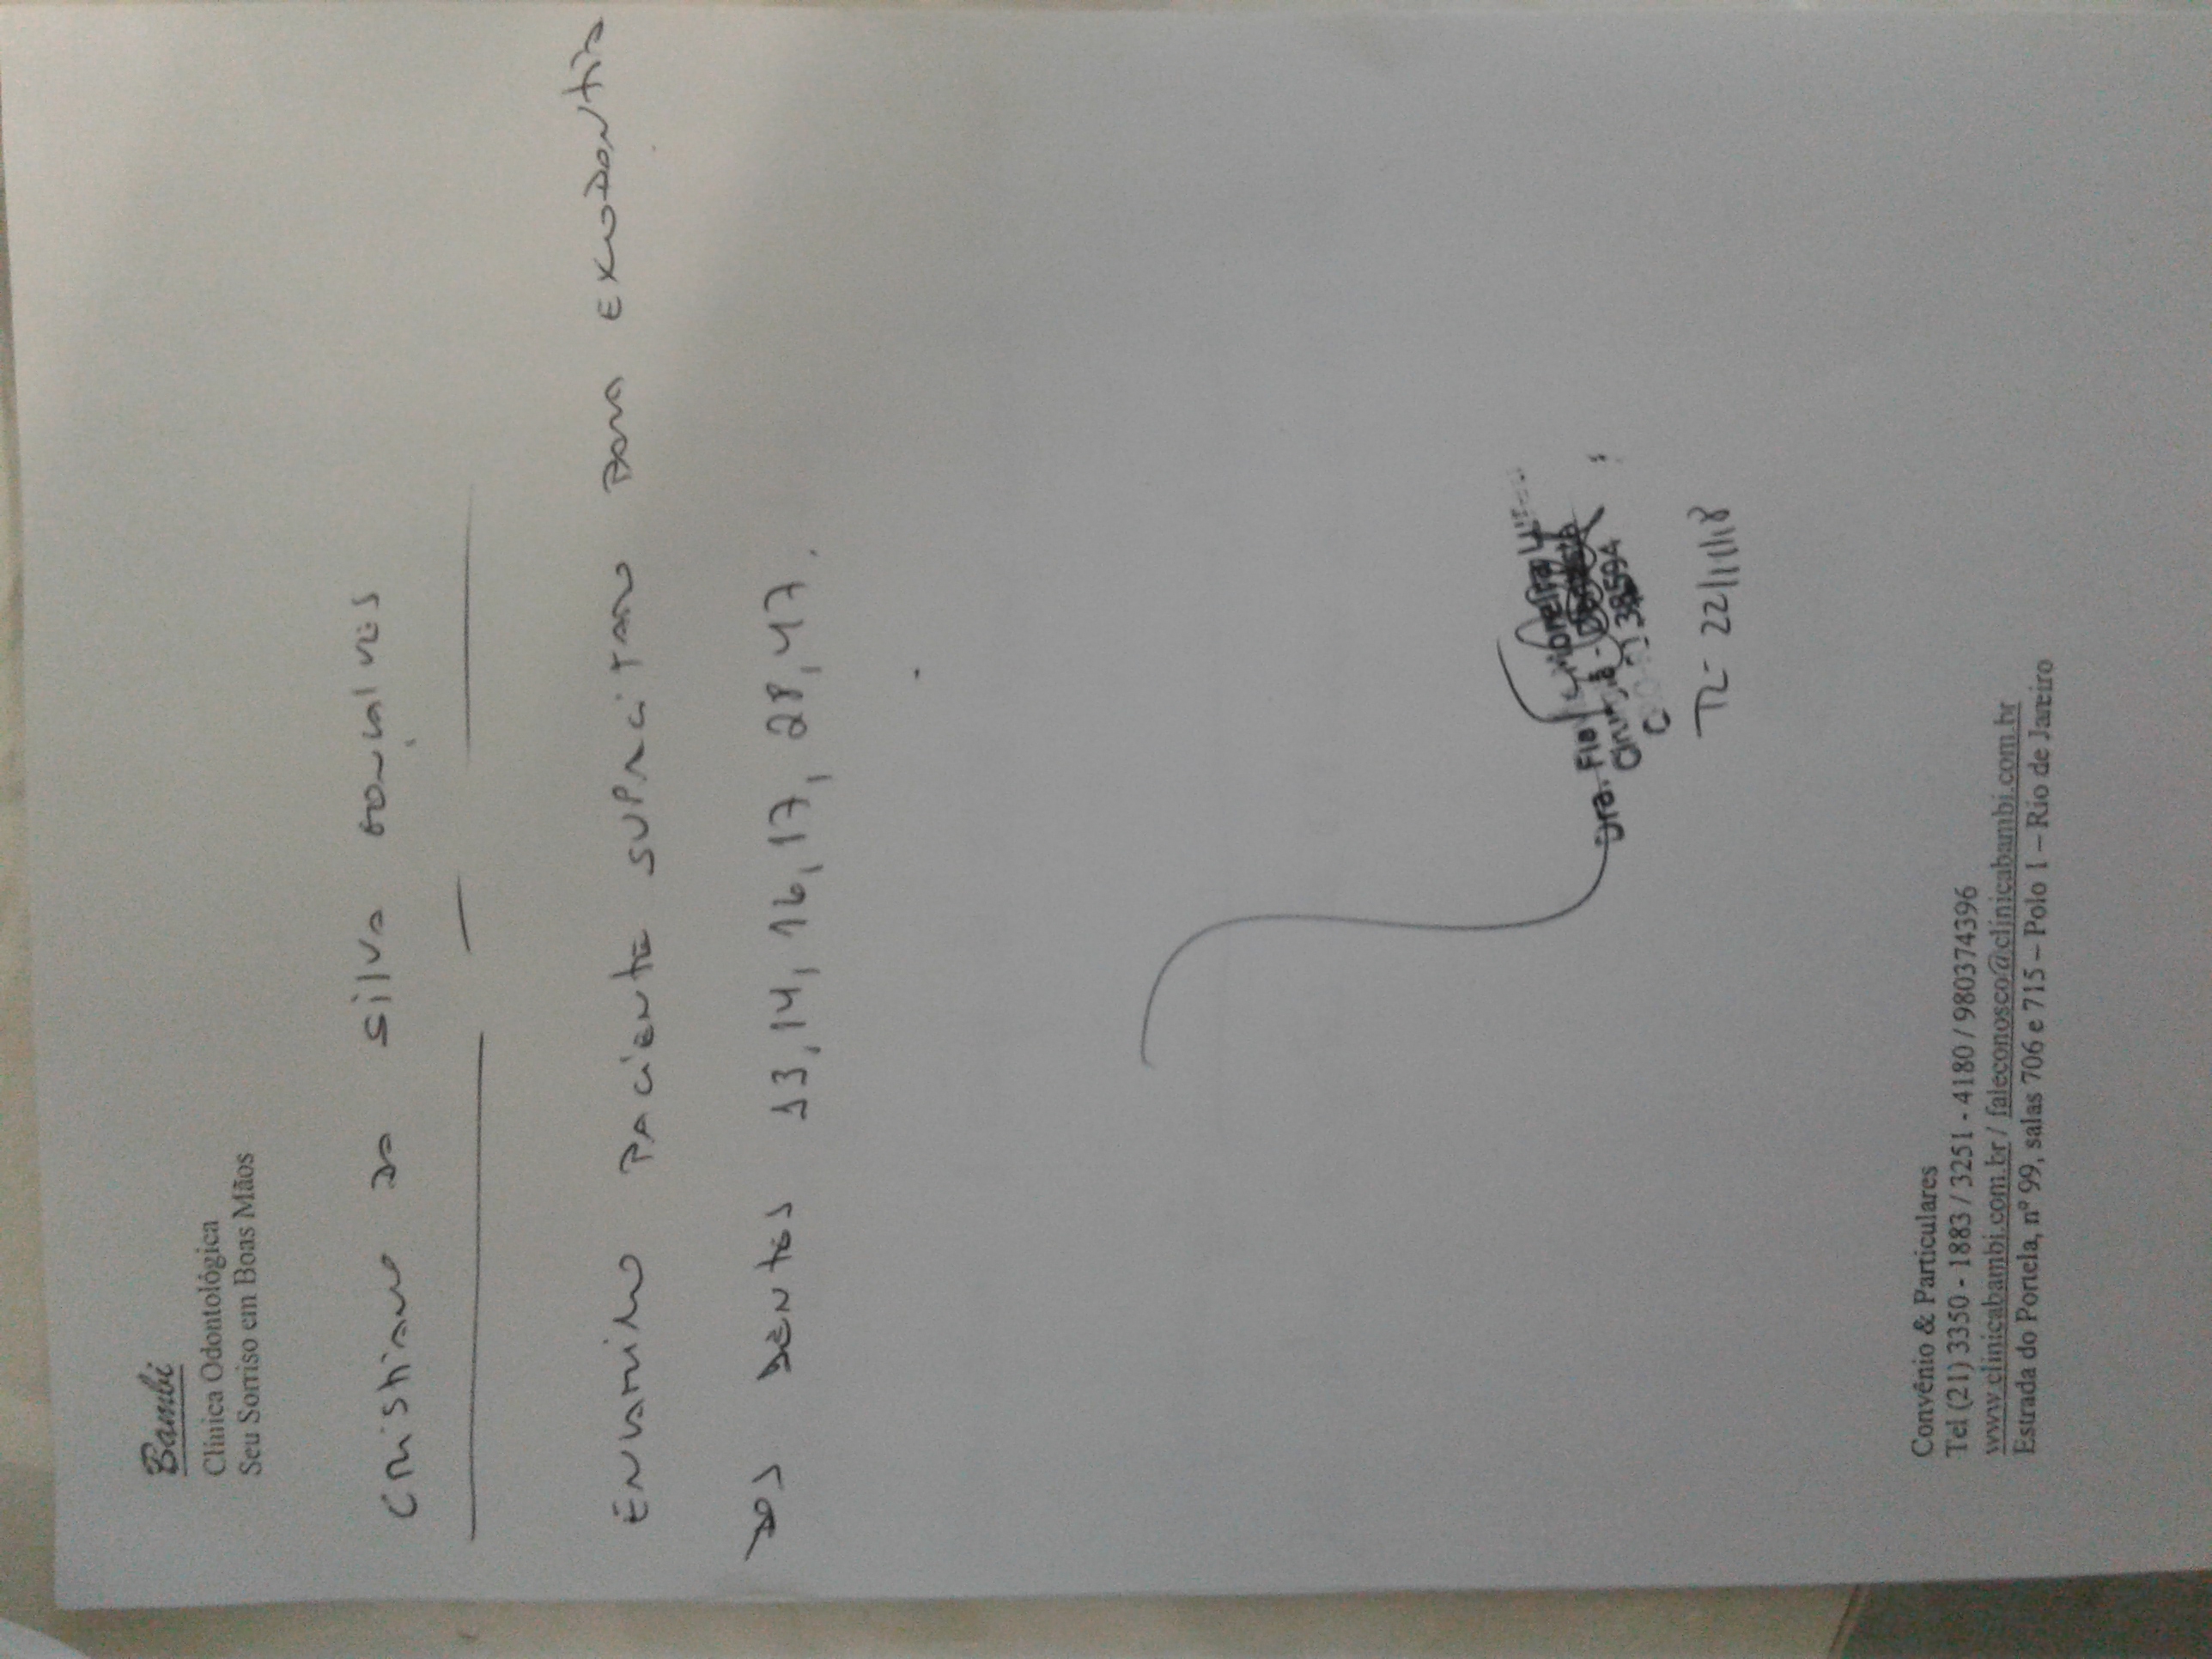 Bambi
Clínica Odontológica
Seu Sorriso em Boas Mãos
Cristiano da Silva Gonçalves
Encaminho paciente supracitado para exodontia
dos dentes 13, 14, 16, 17, 28, 47.
Dra.
38594
22/11/18
Convênio & Particulares
Tel (21) 3350 - 1883 / 3251 - 4180 / 980374396
www.clinicabambi.com.br / faleconosco@clinicabambi.com.br
Estrada do Portela, nº 99, salas 706 e 715 – Polo 1 – Rio de Janeiro